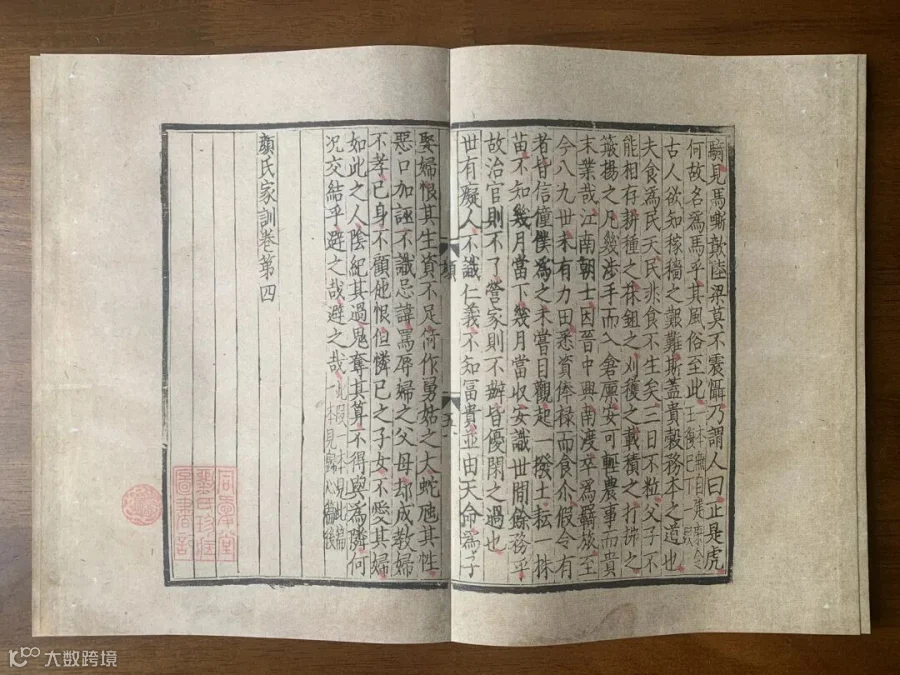 騎見馬嘶歕陸梁莫不震懾乃謂人曰正是虎
何故名爲馬乎其風俗至此一本無自建康令王復已下一段
古人欲知稼穡之艱難斯蓋貴穀務本之道也
夫食爲民天民非食不生矣三日不粒父子不
能相存耕種之茠鉏之刈穫之載積之打拂之
簸揚之凡幾涉手而入倉廩安可輕農事而貴
末業哉江南朝士因晉中興南渡卒爲羇旅至
今八九世未有力田悉資俸祿而食尒假令有
者皆信僮僕爲之未嘗目觀起一撥土耘一株
苗不知幾月當下幾月當收安識世間餘務乎
故治官則不了營家則不辦皆優閑之過也
世有癡人不識仁義不知冨貴並由天命爲子
顏
五
娶婦恨其生資不足倚作舅姑之大蛇虺其性
惡口加誣不識忌諱罵辱婦之父母却成教婦
不孝己身不顧他恨但憐己之子女不愛其婦
如此之人陰紀其過鬼奪其算不得與爲隣何
況交結乎避之哉避之哉此段一本見此篇一本見歸心篇後
顏氏家訓卷第四
大数跨境